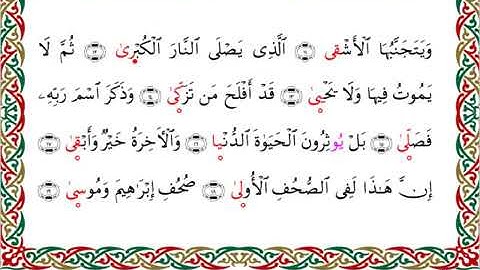 وَيَتَجَنَّبُهَا الْأَشْقَى ۝١١ الَّذِي يَصْلَى النَّارَ الْكُبْرَىٰ ۝١٢ ثُمَّ لَا
يَمُوتُ فِيهَا وَلَا يَحْيَىٰ ۝١٣ قَدْ أَفْلَحَ مَن تَزَكَّىٰ ۝١٤ وَذَكَرَ اسْمَ رَبِّهِۦ
فَصَلَّىٰ ۝١٥ بَلْ يُوثِرُونَ الْحَيَوٰةَ الدُّنْيَا ۝١٦ وَالْأَخِرَةُ خَيْرٌ وَأَبْقَىٰ ۝١٧
إِنَّ هَٰذَا لَفِي الصُّحُفِ الْأُولَىٰ ۝١٨ صُحُفِ إِبْرَٰهِيمَ وَمُوسَىٰ ۝١٩